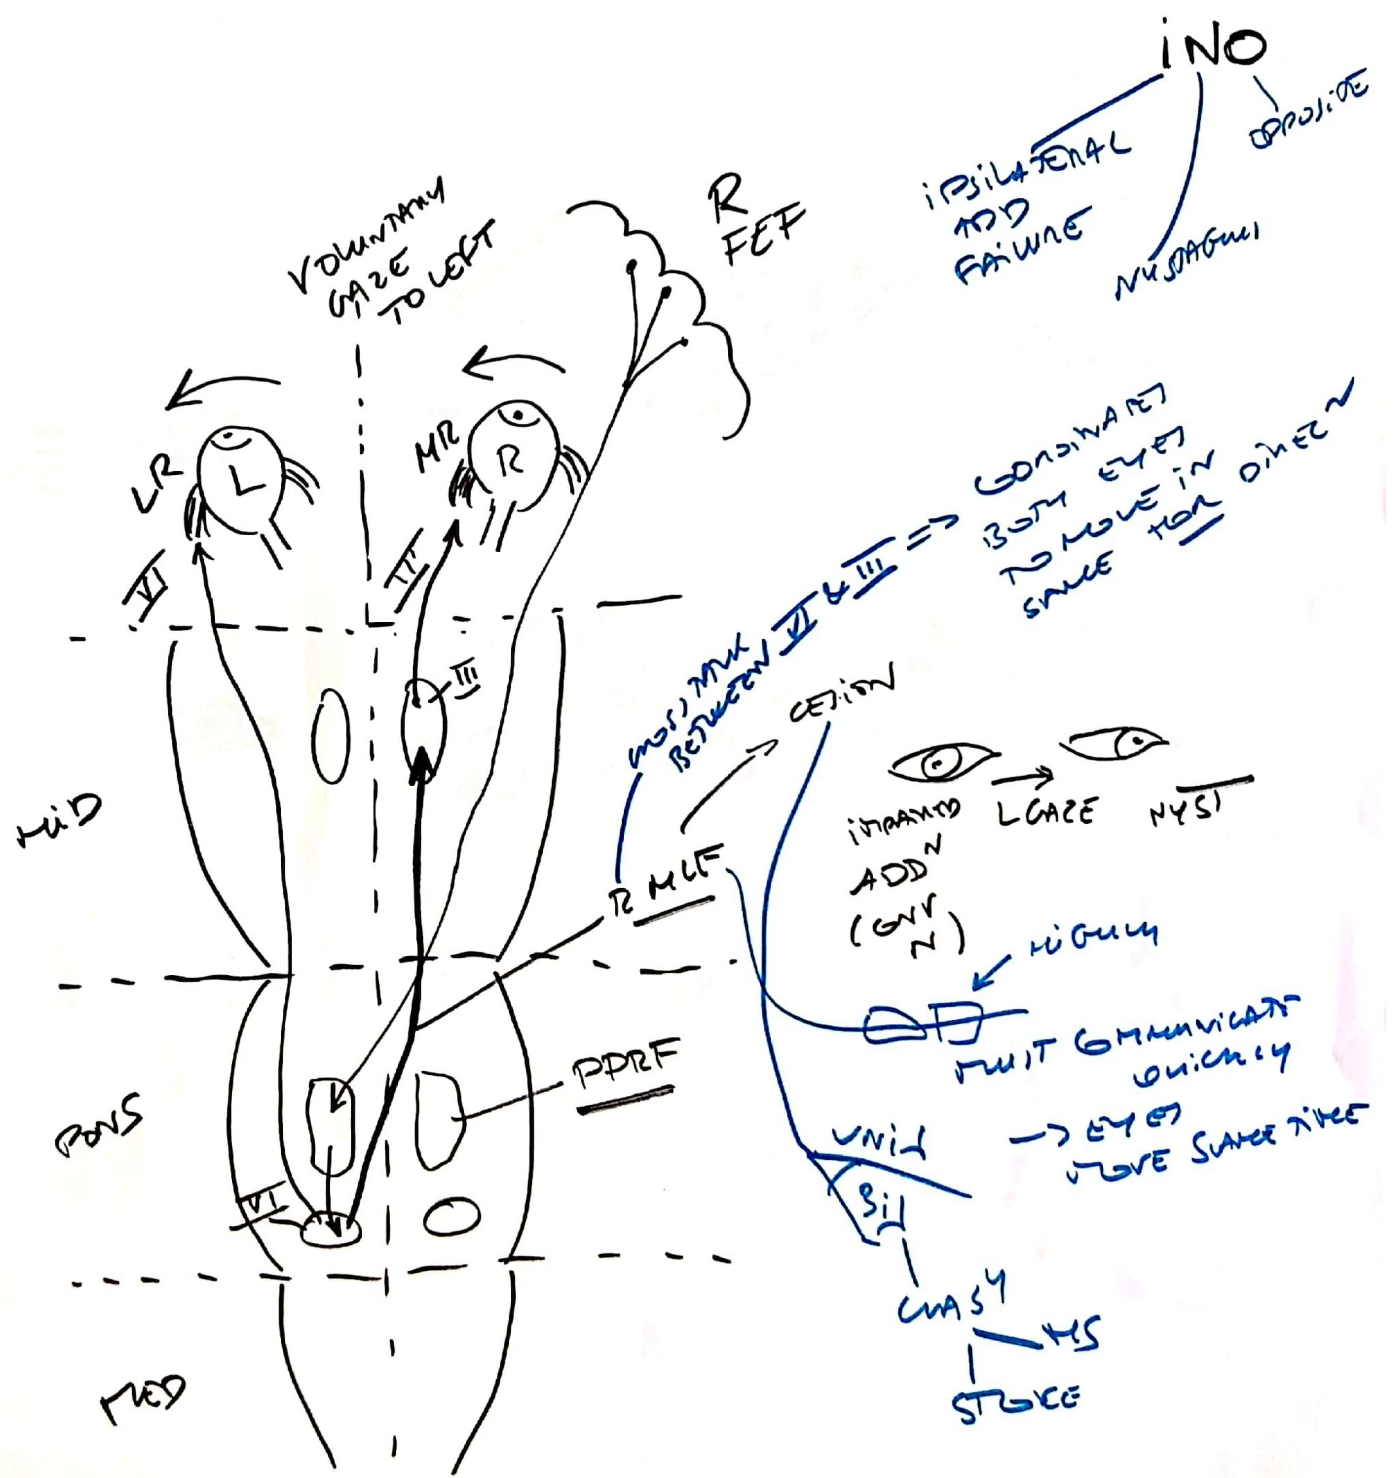 iNO
OPPOSITE
iPSiLATERAL
ADD
FAiLURE
NYSTAGMUS
R
FEF
VOLUNTARY
GAZE
TO LEFT
LR
L
MR
R
VI
III
III
MiD
PONS
MED
VI
PPRF
R MLF
CROSS TALK
BETWEEN VI & III =>
COORDINATES
BOTH EYES
TO MOVE IN
SAME HOR DIRECN
LESiON
IMPAIRED
ADDN
(CONV
N)
L GAZE
NYST
HIGHLY
MUST COMMUNICATE
QUICKLY
-> EYES
MOVE SAME TIME
UNiL
BiL
CLASSY
MS
STROKE